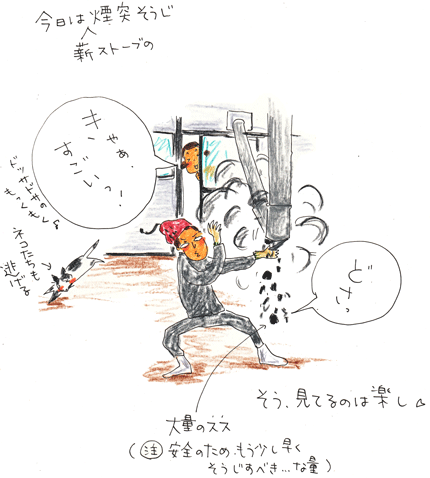 今日は煙突そうじ
薪ストーブの
キャ
やぁ、
すごいっ！
ネコたちも
逃げる
どさっ
そう、見てるのは楽し
大量のスス
(㊟安全のため、もう少し早く
そうじすべき…な量)